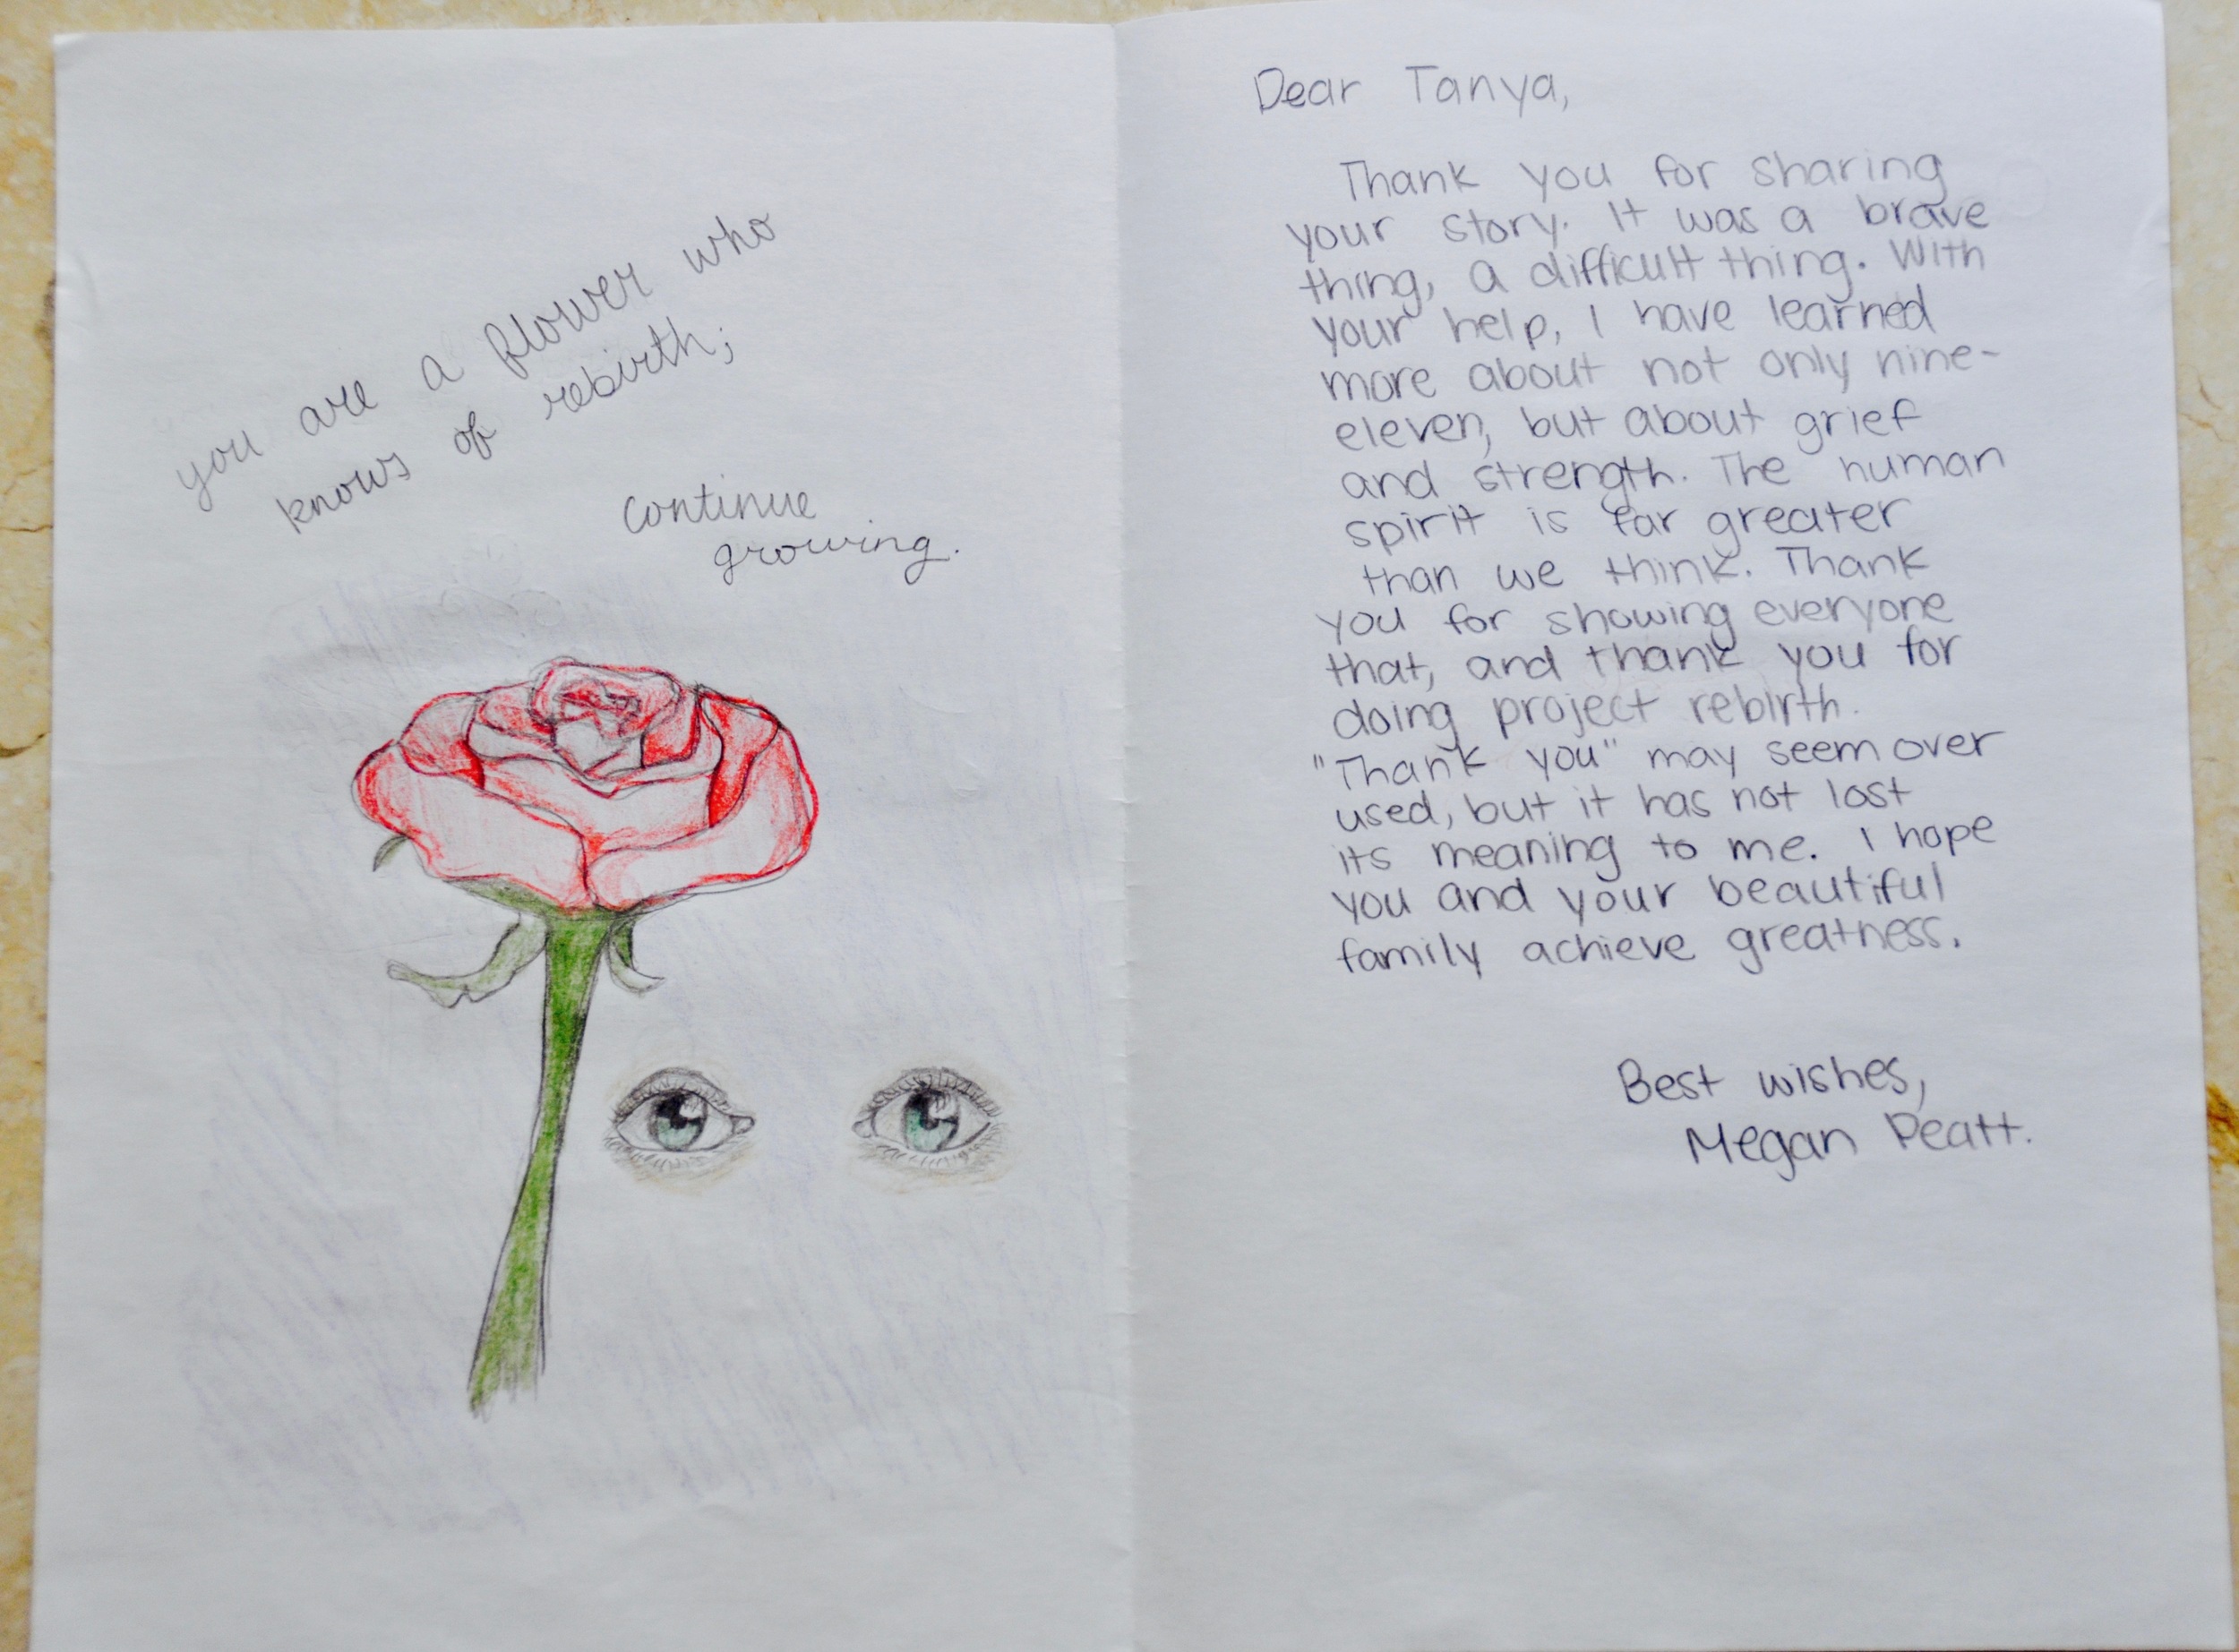 you are a flower who
knows of rebirth;
continue
growing.
Dear Tanya,
Thank you for sharing
your story. It was a brave
thing, a difficult thing. With
your help, I have learned
more about not only nine-
eleven, but about grief
and strength. The human
spirit is far greater
than we think. Thank
you for showing everyone
that, and thank you for
doing project rebirth.
"Thank you" may seem over
used, but it has not lost
its meaning to me. I hope
you and your beautiful
family achieve greatness.
Best wishes,
Megan Peatt.